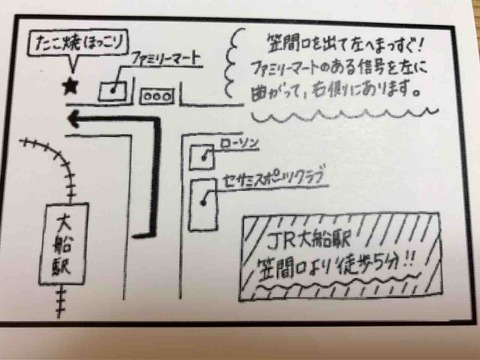 たこ焼ほっこり
ファミリーマート
笠間口を出て左へまっすぐ!
ファミリーマートのある信号を左に
曲がって、右側にあります。
ローソン
セサミスポーツクラブ
大船駅
JR大船駅
笠間口より徒歩5分!!